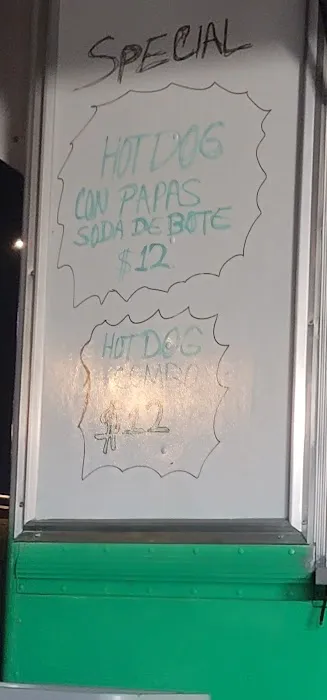 SPECIAL
HOT DOG
CON PAPAS
SODA DE BOTE
$12
HOT DOG
COMBO
$12